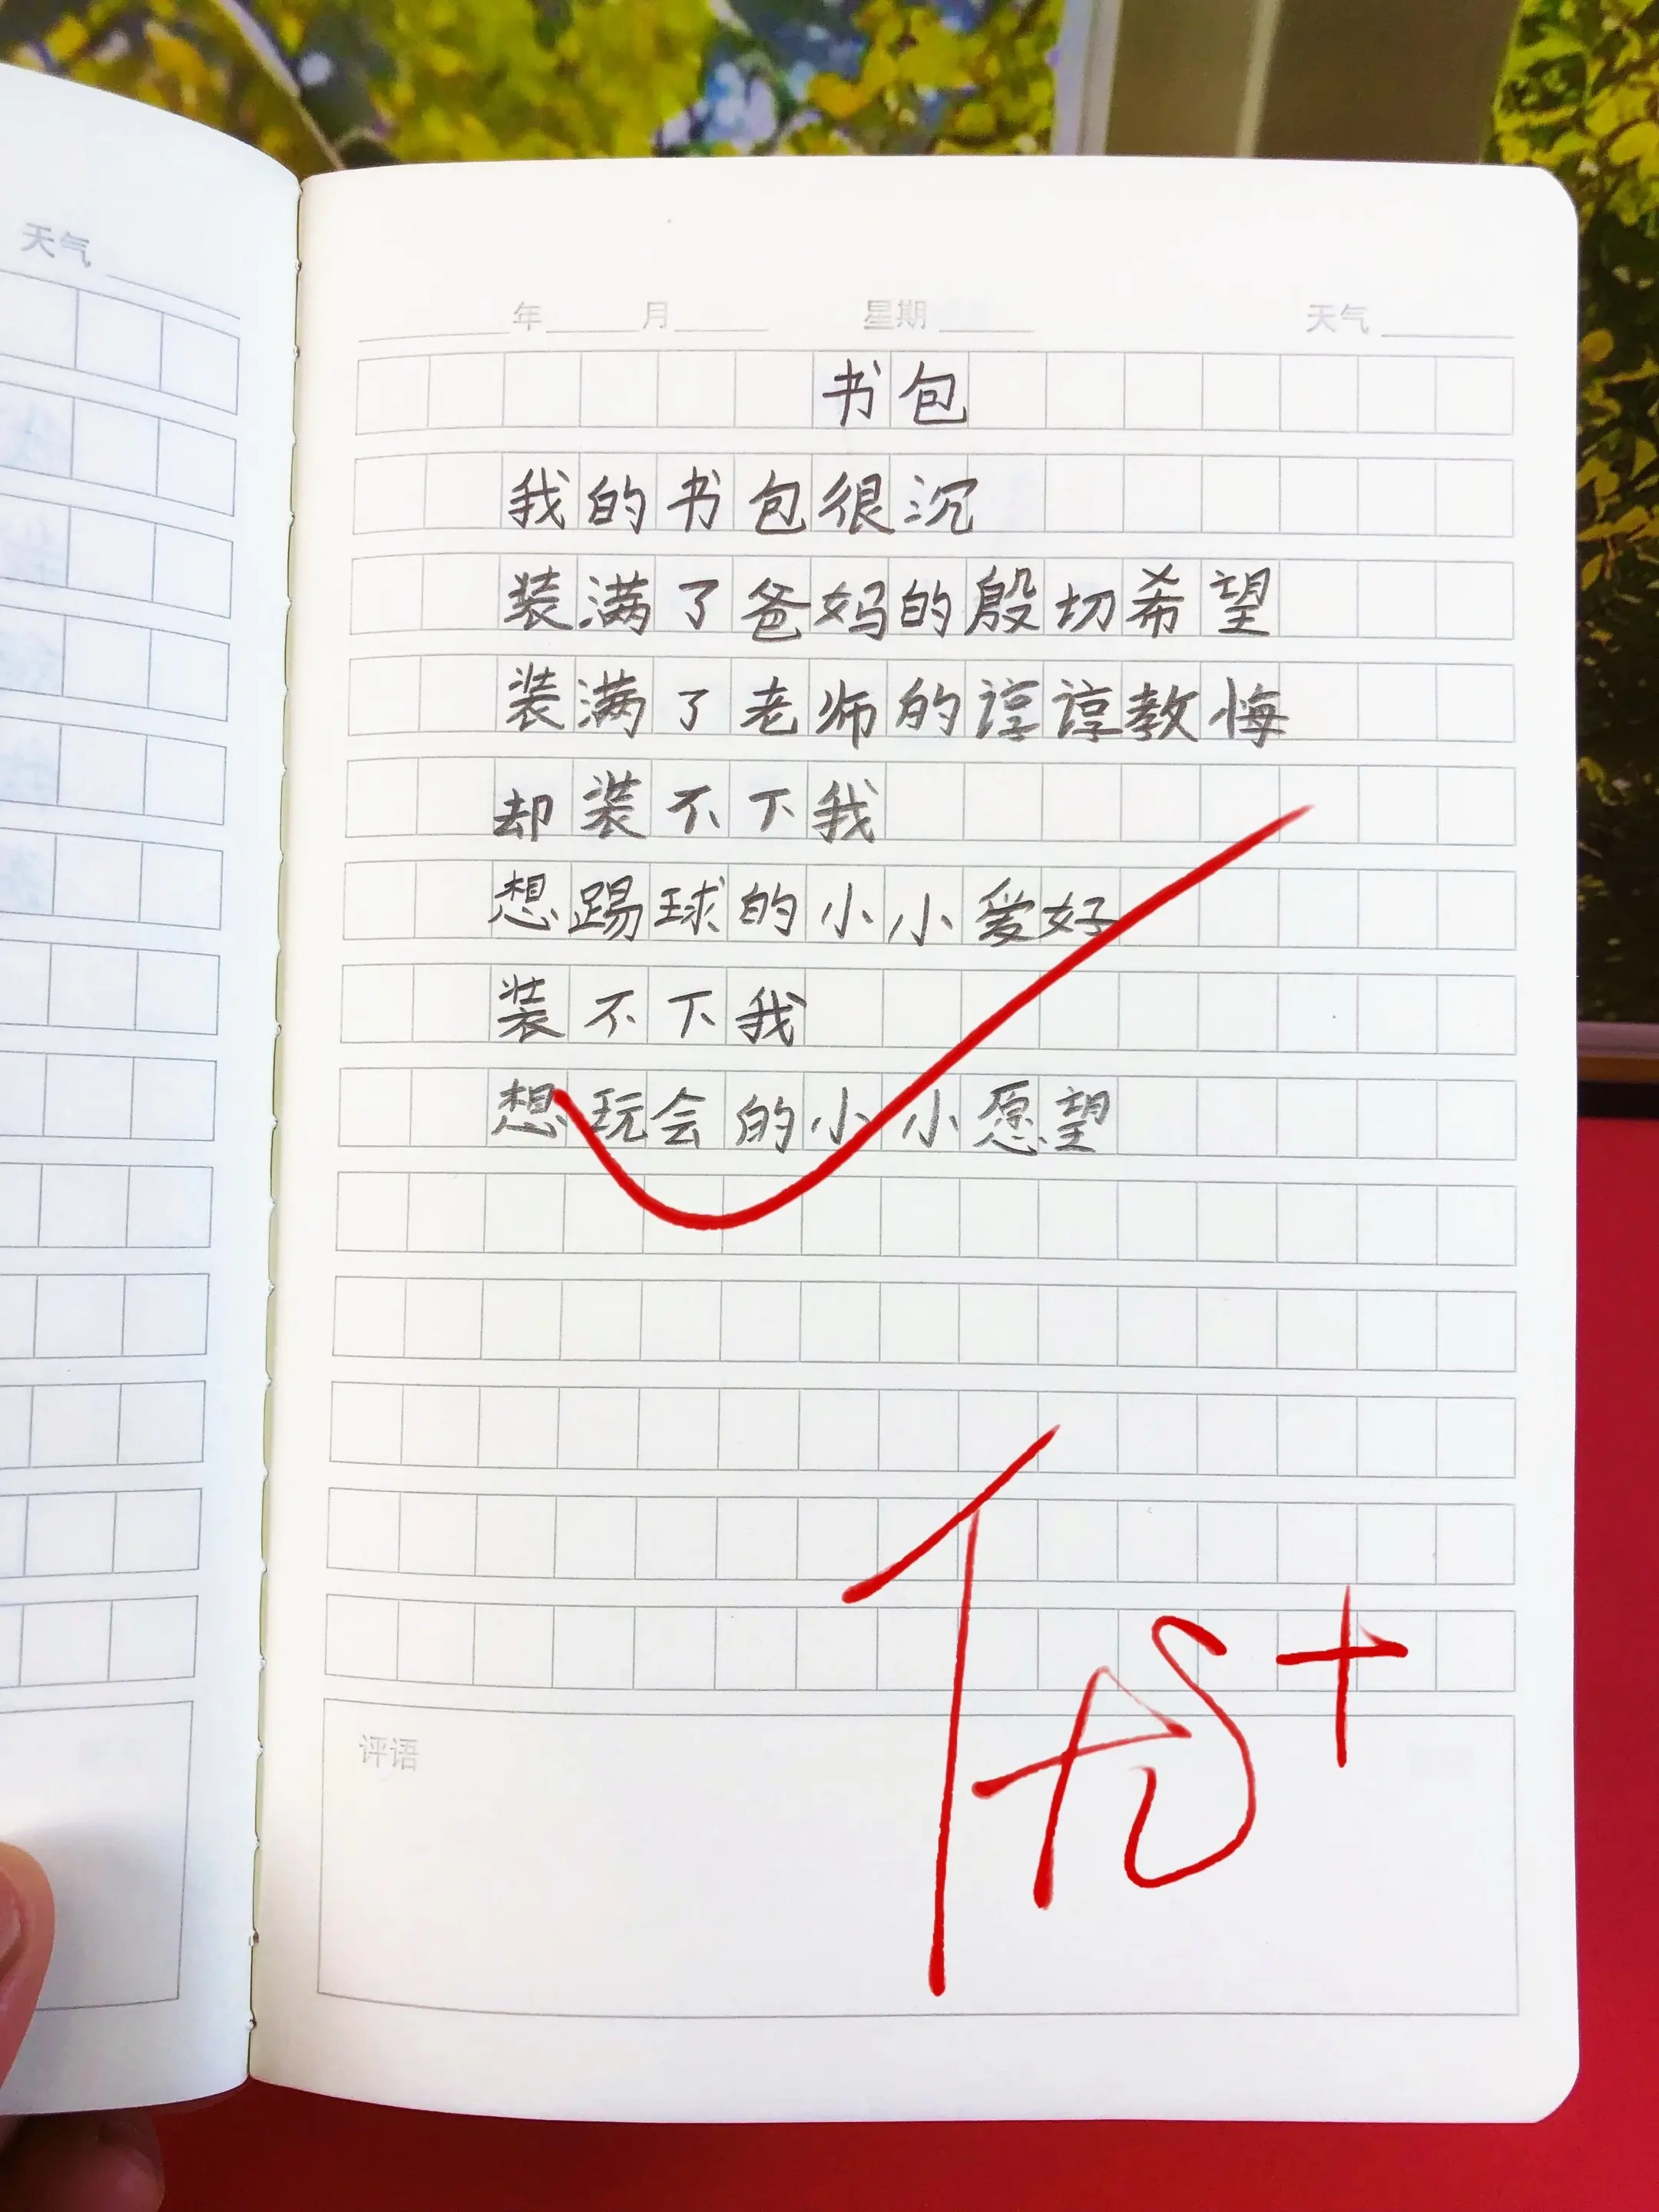 天气
年 月 星期 天气
书包
我的书包很沉
装满了爸妈的殷切希望
装满了老师的谆谆教悔
却装不下我
想踢球的小小爱好
装不下我
想玩会的小小愿望
评语